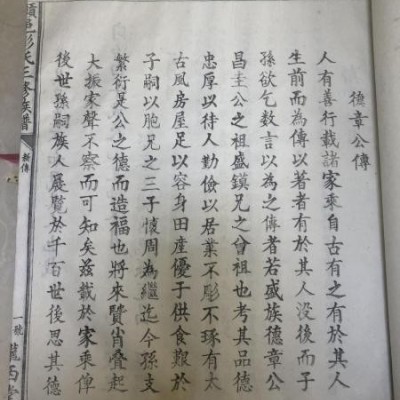 德章公傳
人有善行載諸家乘自古有之有於其人
生前而為傳以著者有於其人没後而子
孫欲乞數言以為之傳者若盛族德章公
昌圭公之祖盛鏌兄之曾祖也考其品德
忠厚以待人勤儉以居業不彫不琢有太
古風房屋足以容身田產優于供食艱於
子嗣以胞兄之三子懷周為繼迄今孫支
繁衍是公之德而造福也將來賢肖疊起
大振家聲不察而可知矣茲載於家乘俾
後世孫嗣族人展覽於千百世後思其德
彭氏三修族譜
傳
一號
隴西堂